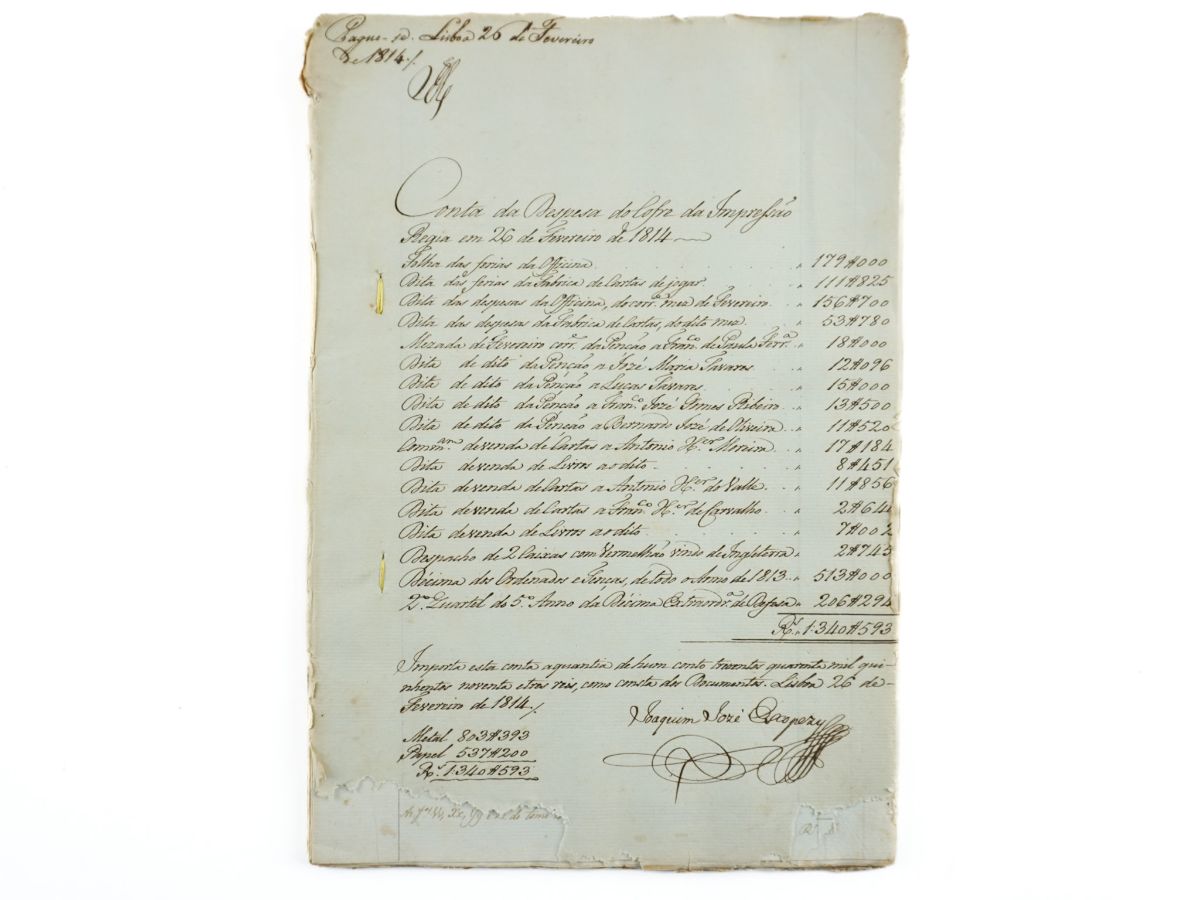 Pague-se. Lisboa 26 de Fevereiro
de 1814./.
Conta da Despesa do Cofre da Impressão
Regia em 26 de Fevereiro de 1814
Folha das ferias da Officina 179$000
Dita das ferias da Fabrica de Cartas de jogar 111$825
Dita das despesas da Officina, do corr.e mez de Fevereiro 156$700
Dita das despesas da Fabrica de Cartas, do dito mez 53$780
Mezada de Fevereiro cor.e da Penção a Fran.co de Paula Ferr.a 18$000
Dita de dito da Penção a Jozé Maria Tavares 12$096
Dita de dito da Penção a Lucas Tavares 15$000
Dita de dito da Penção a Fran.co Jozé Gomes Ribeiro 13$500
Dita de dito da Penção a Bernardo Jozé de Oliveira 11$520
Comm.am de venda de Cartas a Antonio X.er Moreira 17$184
Dita de venda de Livros ao dito 8$451
Dita de venda de Cartas a Antonio X.er do Valle 11$856
Dita de venda de Cartas a Fran.co X.er de Carvalho 2$64
Dita de venda de Livros ao dito 7$002
Despacho de 2 Caixas com Vermelhão vindo de Inglaterra 2$745
Décima dos Ordenados e Tenças, de todo o Anno de 1813 513$000
2.o Quartel do 5.o Anno da Décima Extraordr.a de Defesa 206$294
R.s 1.340$593
Importa esta conta a quantia de hum conto trezentos quarenta mil qui-
nhentos noventa e tres reis, como consta dos Documentos. Lisboa 26 de-
Fevereiro de 1814./.
Joaquim Jozé Escopezy
Metal 803$393
Papel 537$200
R.s 1.340$593